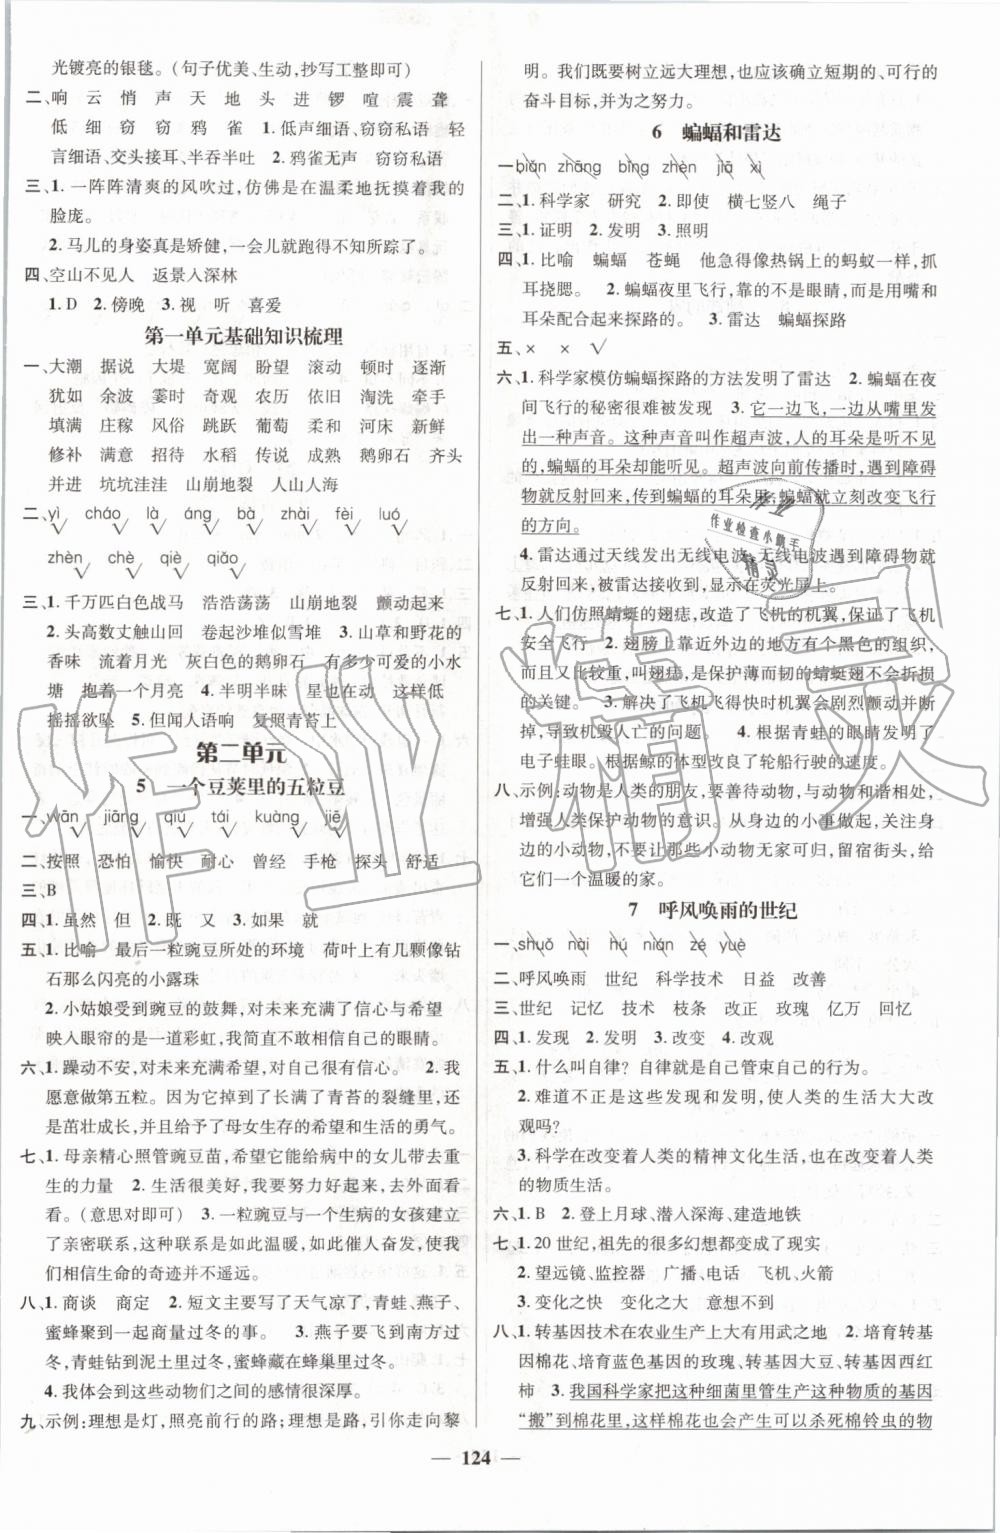 光镀亮的银毯。(句子优美、生动,抄写工整即可)
二、响 云 悄 声 天 地 头 进 锣 喧 震 聋
低 细 窃 窃 鸦 雀 1.低声细语、窃窃私语 轻
言细语、交头接耳、半吞半吐 2.鸦雀无声 窃窃私语
三、1.一阵阵清爽的风吹过,仿佛是在温柔地抚摸着我的
脸庞。
2.马儿的身姿真是矫健,一会儿就跑得不知所踪了。
四、空山不见人 返景入深林
1.D 2.傍晚 3.视 听 喜爱
第一单元基础知识梳理
一、大潮 据说 大堤 宽阔 盼望 滚动 顿时 逐渐
犹如 余波 霎时 奇观 农历 依旧 淘洗 牵手
填满 庄稼 风俗 跳跃 葡萄 柔和 河床 新鲜
修补 满意 招待 水稻 传说 成熟 鹅卵石 齐头
并进 坑坑洼洼 山崩地裂 人山人海
二、yì cháo là áng bà zhài fèi luó
zhèn chè qiè qiǎo
三、1.千万匹白色战马 浩浩荡荡 山崩地裂 颤动起来
2.头高数丈触山回 卷起沙堆似雪堆 3.山草和野花的
香味 流着月光 灰白色的鹅卵石 有多少可爱的小水
塘 抱着一个月亮 4.半明半昧 星也在动 这样低
摇摇欲坠 5.但闻人语响 复照青苔上
第二单元
5 一个豆荚里的五粒豆
一、wān jiāng qiú tái kuàng jiē
二、按照 恐怕 愉快 耐心 曾经 手枪 探头 舒适
三、B
四、1.虽然 但 2.既 又 3.如果 就
五、1.比喻 最后一粒豌豆所处的环境 荷叶上有几颗像钻
石那么闪亮的小露珠
2.小姑娘受到豌豆的鼓舞,对未来充满了信心与希望
映入眼帘的是一道彩虹,我简直不敢相信自己的眼睛。
六、1.躁动不安,对未来充满希望,对自己很有信心。 2.我
愿意做第五粒。因为它掉到了长满了青苔的裂缝里,快
速的茁壮成长,并且给了母女生存的希望和生活的勇气。
七、1.母亲精心照管豌豆苗,希望它能给病中的女儿带去重
生的力量 2.生活很美好,我要努力好起来,去外面看
看。(意思对即可) 3.一粒豌豆与一个生病的女孩建立
了亲密联系,这种联系是如此温暖,如此催人奋发,使我
们相信生命的奇迹并不遥远。
八、1.商谈 商定 2.短文主要写了天气凉了,青蛙、燕子、
蜜蜂聚到一起商量过冬的事。 3.燕子要飞到南方过
冬,青蛙钻到泥土里过冬,蜜蜂藏在蜂巢里过冬。
4.我体会到这些动物们之间的感情很深厚。
九、示例:理想是灯,照亮前行的路;理想是路,引你走向黎
明。我们既要树立远大理想,也应该确立短期的、可行的
奋斗目标,并为之努力。
6 蝙蝠和雷达
一、biān zhāng bīng zhèn jià xì
二、1.科学家 研究 2.即使 横七竖八 绳子
三、1.证明 2.发明 3.照明
四、1.比喻 蝙蝠 苍蝇 他急得像热锅上的蚂蚁一样,抓
耳挠腮。 2.蝙蝠夜里飞行,靠的不是眼睛,而是用嘴和
耳朵配合起来探路的。 3.雷达 蝙蝠探路
五、× × √
六、1.科学家模仿蝙蝠探路的方法发明了雷达 2.蝙蝠在夜
间飞行的秘密很难被发现 3.它一边飞,一边从嘴里发
出一种声音。这种声音叫作超声波,人的耳朵是听不见
的,蝙蝠的耳朵却能听见。超声波向前传播时,遇到障碍
物就反射回来,传到蝙蝠的耳朵里,蝙蝠就立刻改变飞行
的方向。
4.雷达通过天线发出无线电波,无线电波遇到障碍物就
反射回来,被雷达接收到,显示在荧光屏上。
七、1.人们仿照蜻蜓的翅痣,改造了飞机的机翼,保证了飞机
安全飞行 2.翅膀上靠近外边的地方有个黑色的组织,
而且又比较重,叫翅痣,是保护薄而韧的蜻蜓翅不会折损
的关键。 3.解决了飞机飞得快时机翼会剧烈颤动并断
掉,导致机毁人亡的问题。 4.根据青蛙的眼睛发明了
电子蛙眼。根据鲸的体型改良了轮船行驶的速度。
八、示例:动物是人类的朋友,要善待动物,与动物和谐相处,
增强人类保护动物的意识。从身边的小事做起,关注身
边的小动物,不要让那些小动物无家可归,留宿街头,给
它们一个温暖的家。
7 呼风唤雨的世纪
一、shuǒ nài hú nián zé yuè
二、呼风唤雨 世纪 科学技术 日益 改善
三、世纪 记忆 技术 枝条 改正 玫瑰 亿万 回忆
四、1.发现 2.发明 3.改变 4.改观
五、1.什么叫自律?自律就是自己管束自己的行为。
2.难道不正是这些发现和发明,使人类的生活大大改
观吗?
3.科学在改变着人类的精神文化生活,也在改变着人类
的物质生活。
六、1.B 2.登上月球、潜入深海、建造地铁
七、1.20世纪,祖先的很多幻想都变成了现实
2.望远镜、监控器 广播、电话 飞机、火箭
3.变化之快 变化之大 意想不到
八、1.转基因技术在农业生产上大有用武之地 2.培育转
基因棉花、培育蓝色基因的玫瑰、转基因大豆、转基因西红
柿 3.我国科学家把这种细菌里管生产这种物质的基因
“搬”到棉花里,这样棉花也会产生可以杀死棉铃虫的物
— 124 —
作业精灵
作业
作业检查小帮手
精灵